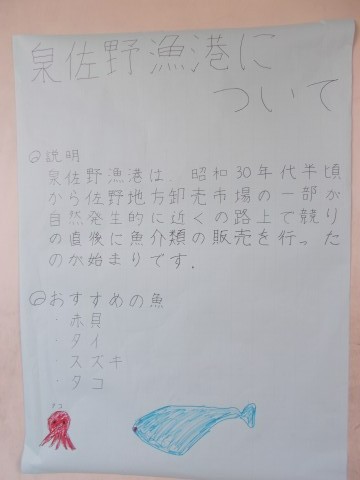 泉佐野漁港に
ついて
○説明
泉佐野漁港は、昭和30年代半頃
から佐野地方卸売市場の一部が
自然発生的に近くの路上で競り
の直後に魚介類の販売を行った
のが始まりです.
○おすすめの魚
・赤貝
・タイ
・スズキ
・タコ
タコ